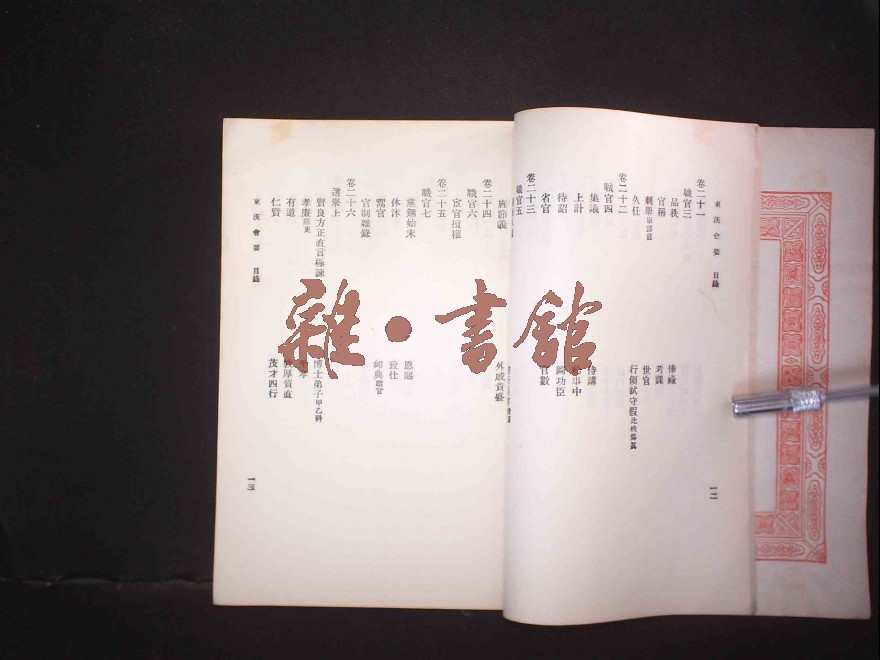 東漢會要 目錄
卷二十一
職官三
品秩 俸祿
官稱 考課
刺舉 世官
久任 行領試守假
卷二十二
職官四
集議 侍講
上計 給事中
待詔 圖功臣
省官 官數
卷二十三
職官五
一二
旌節義 外戚貴盛
卷二十四
職官六
宦官擅權
卷二十五
職官七
黨錮始末
休沐 恩賜
鬻官 致仕
官制雜錄 卹典贈官
卷二十六
選舉上
賢良方正直言極諫 博士弟子甲乙科
孝廉
有道 敦厚質直
仁賢 茂才四行
東漢會要 目錄
一三
雜·書館